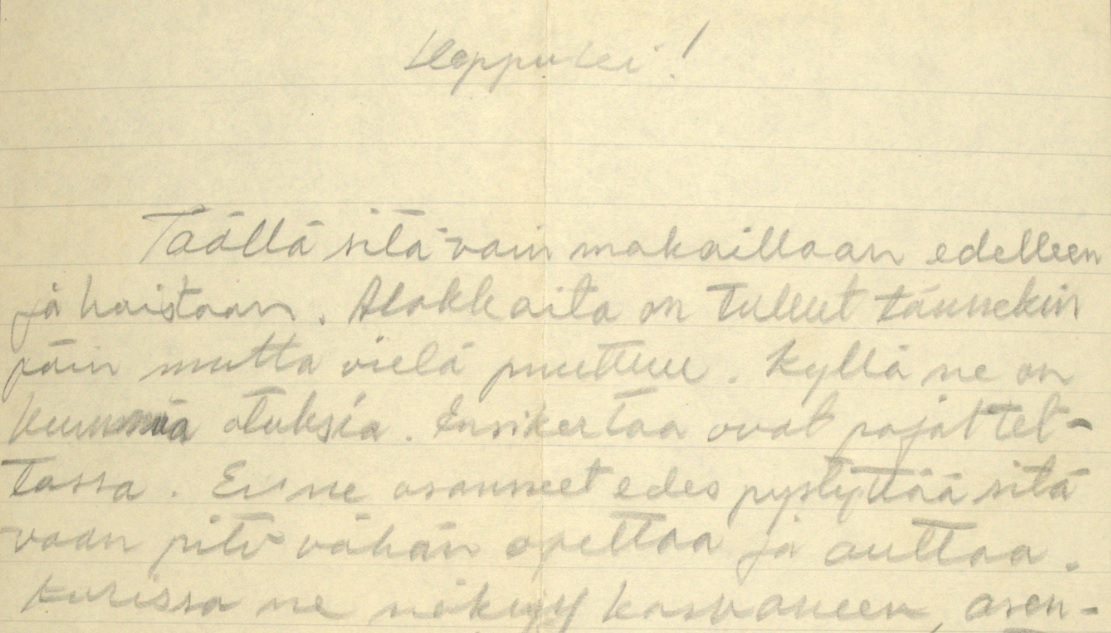 Heppulei!
Täällä sitä vain makaillaan edelleen
ja haistaan. Alokkaita on tullut tännekin
päin mutta vielä puuttuu. Kyllä ne on
kummia otuksia. Ensikertaa ovat pojat tel-
tassa. Ei ne osanneet edes pystyttää sitä
vaan piti vähän opettaa ja auttaa.
Kurissa ne näkyy kasvaneen, asen-